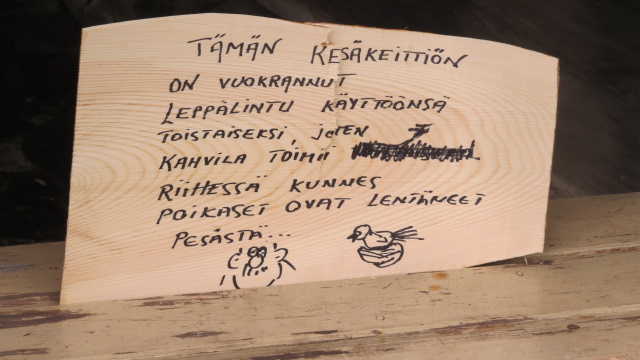 TÄMÄN KESÄKEITTIÖN
ON VUOKRANNUT
LEPPÄLINTU KÄYTTÖÖNSÄ
TOISTAISEKSI, joTEN
KAHVILA TOIMII
RIIHESSÄ KUNNES
POIKASET OVAT LENTÄNEET
PESÄSTÄ...